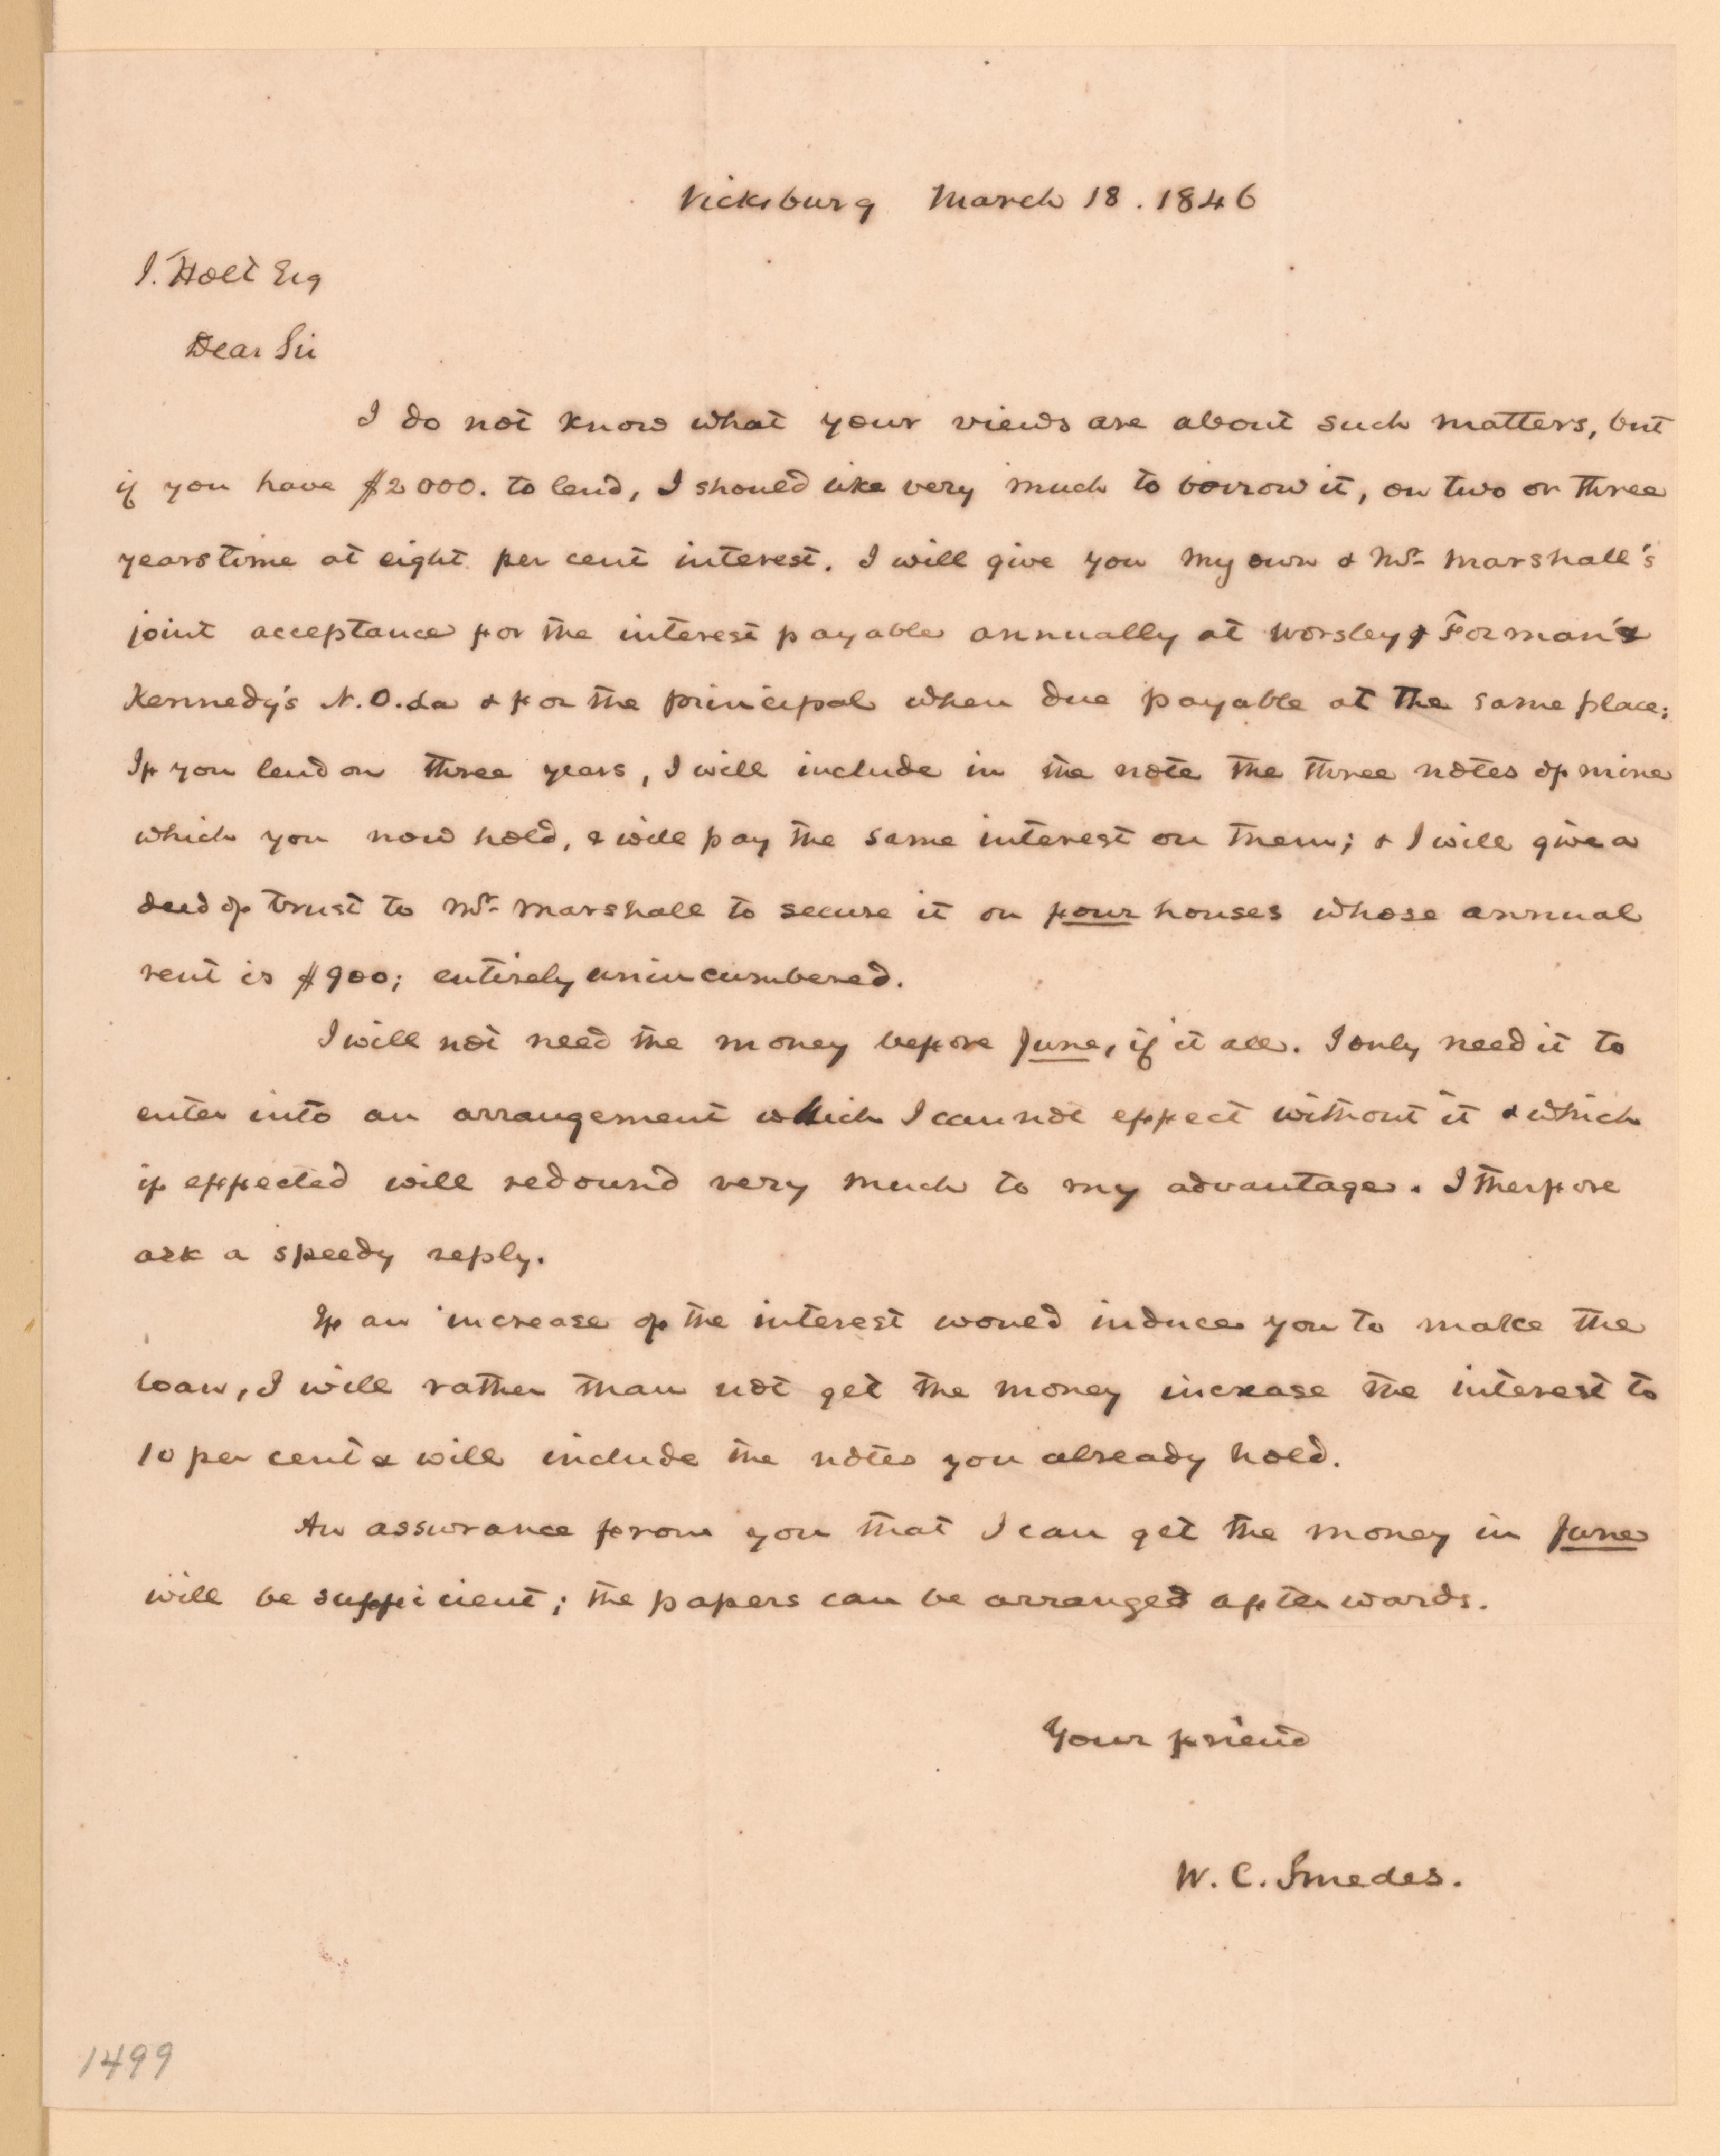 Vicksburg March 18. 1846
J. Holt Esq
Dear Sir
I do not know what your views are about such matters, but
if you have $2000. to lend, I should like very much to borrow it, on two or three
years time at eight per cent interest. I will give you my own & Mr Marshall's
joint acceptance for the interest payable annually at Worsley & Forman's
Kennedy's N.O. La & for the principal when due payable at the same place:
If you lend on three years, I will include in the note the three notes of mine
which you now hold, & will pay the same interest on them; & I will give a
deed of trust to Mr Marshall to secure it on four houses whose annual
rent is $900; entirely unincumbered.
I will not need the money before June, if it all. I only need it to
enter into an arrangement which I can not effect without it & which
if effected will redound very much to my advantage. I therfore
ask a speedy reply.
If an increase of the interest would induce you to make the
loan, I will rather than not get the money increase the interest to
10 per cent & will include the notes you already hold.
An assurance from you that I can get the money in June
will be sufficient; the papers can be arranged afterwards.
Your friend
W. C. Smedes.
1499